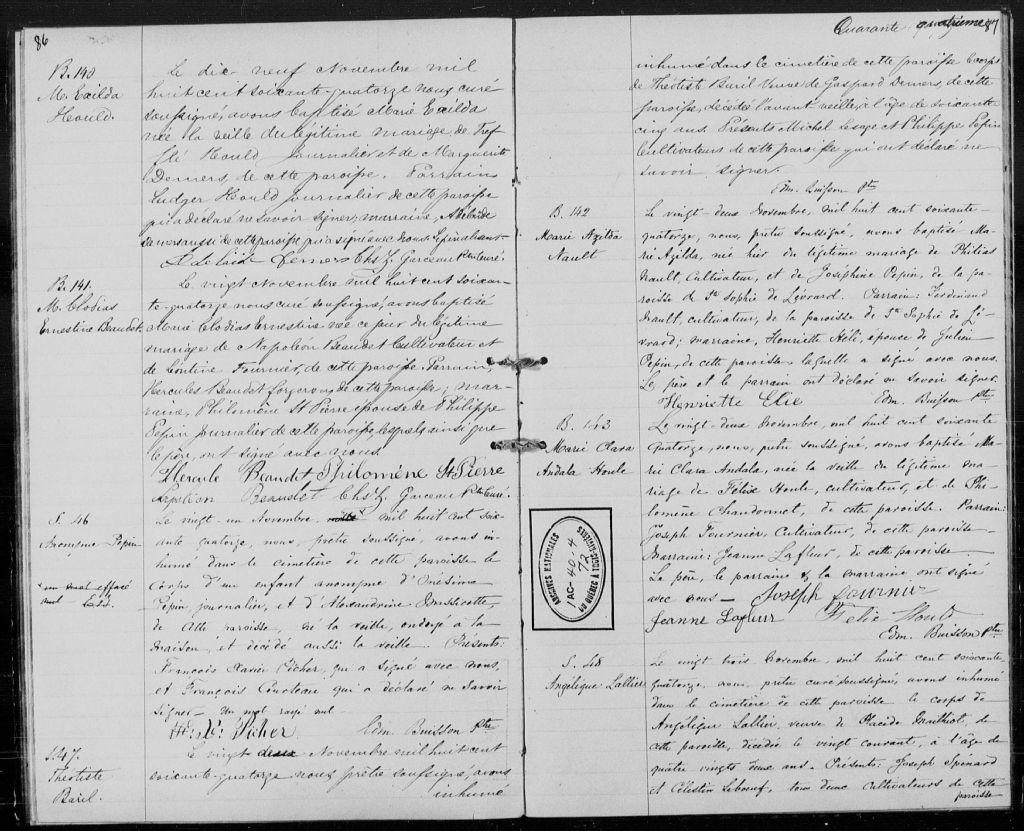 86
B. 140
M. Exilda
Hould.
Le dix-neuf Novembre mil
huit cent soixante-quatorze nous curé
soussigné, avons baptisé Marie Exilda
née la veille du légitime mariage de Tref
flé Hould Journalier et de Marguerite
Demers, de cette paroisse. Parrain
Ludger Hould journalier de cette paroisse
qui a déclaré ne savoir signer; marraine, Adélaïde
Demers aussi de cette paroisse qui a signé avec nous. Le père absent.
Adelaide Demers Chs Z. Garceau Ptre Curé.
B. 141.
M. Clodias
Ernestine Beaudet
Le vingt Novembre mil huit cent soixan-
te-quatorze nous curé soussigné, avons baptisé
Marie Clodias Ernestine née ce jour du légitime
mariage de Napoléon Beaudet Cultivateur et
de Fournier, de cette paroisse. Parrain,
Hercules Beaudet forgeron, de cette paroisse; mar-
raine, Philomène St Pierre épouse de Philippe
Pepin Journalier de cette paroisse, lesquels ainsi que
le père, ont signé avec nous.
Hercule Beaudet Philomène St Pierre
Napoléon Beaudet Chs Z. Garceau Ptre Curé.
S. 46
Anonyme Pepin
x un mot effacé
nul E.B.
Le vingt-un Novembre x mil huit cent soix-
ante quatorze, nous, prêtre soussigné, avons in-
humé dans le cimetière de cette paroisse le
Corps d'un enfant anonyme d'Onésime
Pepin, journalier, et d'Alexandrine Brissette,
de cette paroisse, né la veille, ondoyé à la
maison, et décédé aussi la veille. Présents:
François Xavier Picher, qui a signé avec nous,
et François Cousteau qui a déclaré ne savoir
signer. Un mot rayé nul.
Picher Edm. Buisson Ptre
S. 47.
Théotiste
Baril.
Le vingt deux Novembre mil huit cent
soixante-quatorze nous prêtre soussigné, avons
inhumé
Quarante quatrième 87
inhumé dans le cimetière de cette paroisse le corps
de Théotiste Baril Veuve de Gaspard Demers, de cette
paroisse, décédée l'avant veille, à l'âge de soixante
cinq ans. Présents Michel Lesage et Philippe Pepin
Cultivateurs de cette paroisse qui ont déclaré ne
savoir signer.
Edm. Buisson Ptre
B. 142
Marie Azilda
Nault
Le vingt-deux Novembre, mil huit cent soixante-
quatorze, nous, prêtre soussigné, avons baptisé Ma-
rie Azilda, née hier du légitime mariage de Philias
Nault, Cultivateur, et de Joséphine Pepin, de la pa-
roisse de Ste Sophie de Lévrard. Parrain: Ferdinand
Nault, cultivateur, de la paroisse de Ste Sophie de Lé-
vrard; marraine, Henriette Héli, épouse de Julien
Pepin, de cette paroisse laquelle a signé avec nous.
Le père et le parrain ont déclaré ne savoir signer.
Henriette Elie Edm. Buisson Ptre
B. 143
Marie Clara
Andala Houle
Le vingt-deux Novembre, mil huit cent soixante
quatorze, nous, prêtre soussigné, avons baptisé Ma-
rie Clara Andala, née la veille du légitime ma-
riage de Félix Houle, cultivateur, et de Phi-
lomène Chandonnet, de cette paroisse. Parrain:
Joseph Fournier, Cultivateur, de cette paroisse.
Marraine: Jeanne Lafleur, de cette paroisse.
Le père, le parrain & la marraine ont signé
avec nous — Joseph
Jeanne Lafleur Felix Hould
Edm. Buisson Ptre
ARCHIVES NATIONALES
1AC-40-4
72
DU QUÉBEC À TROIS-RIVIÈRES
S. 48
Angélique Lallier
Le vingt trois Novembre, mil huit cent soixante
quatorze, nous, prêtre curé soussigné, avons inhumé
dans le cimetière de cette paroisse le corps de
Angélique Lallier, veuve de Placide, de
cette paroisse, décédée le vingt courant, à l'âge de
quatre vingts deux ans. Présents: Joseph Spenard
et Célestin Leboeuf, tous deux Cultivateurs de cette
paroisse